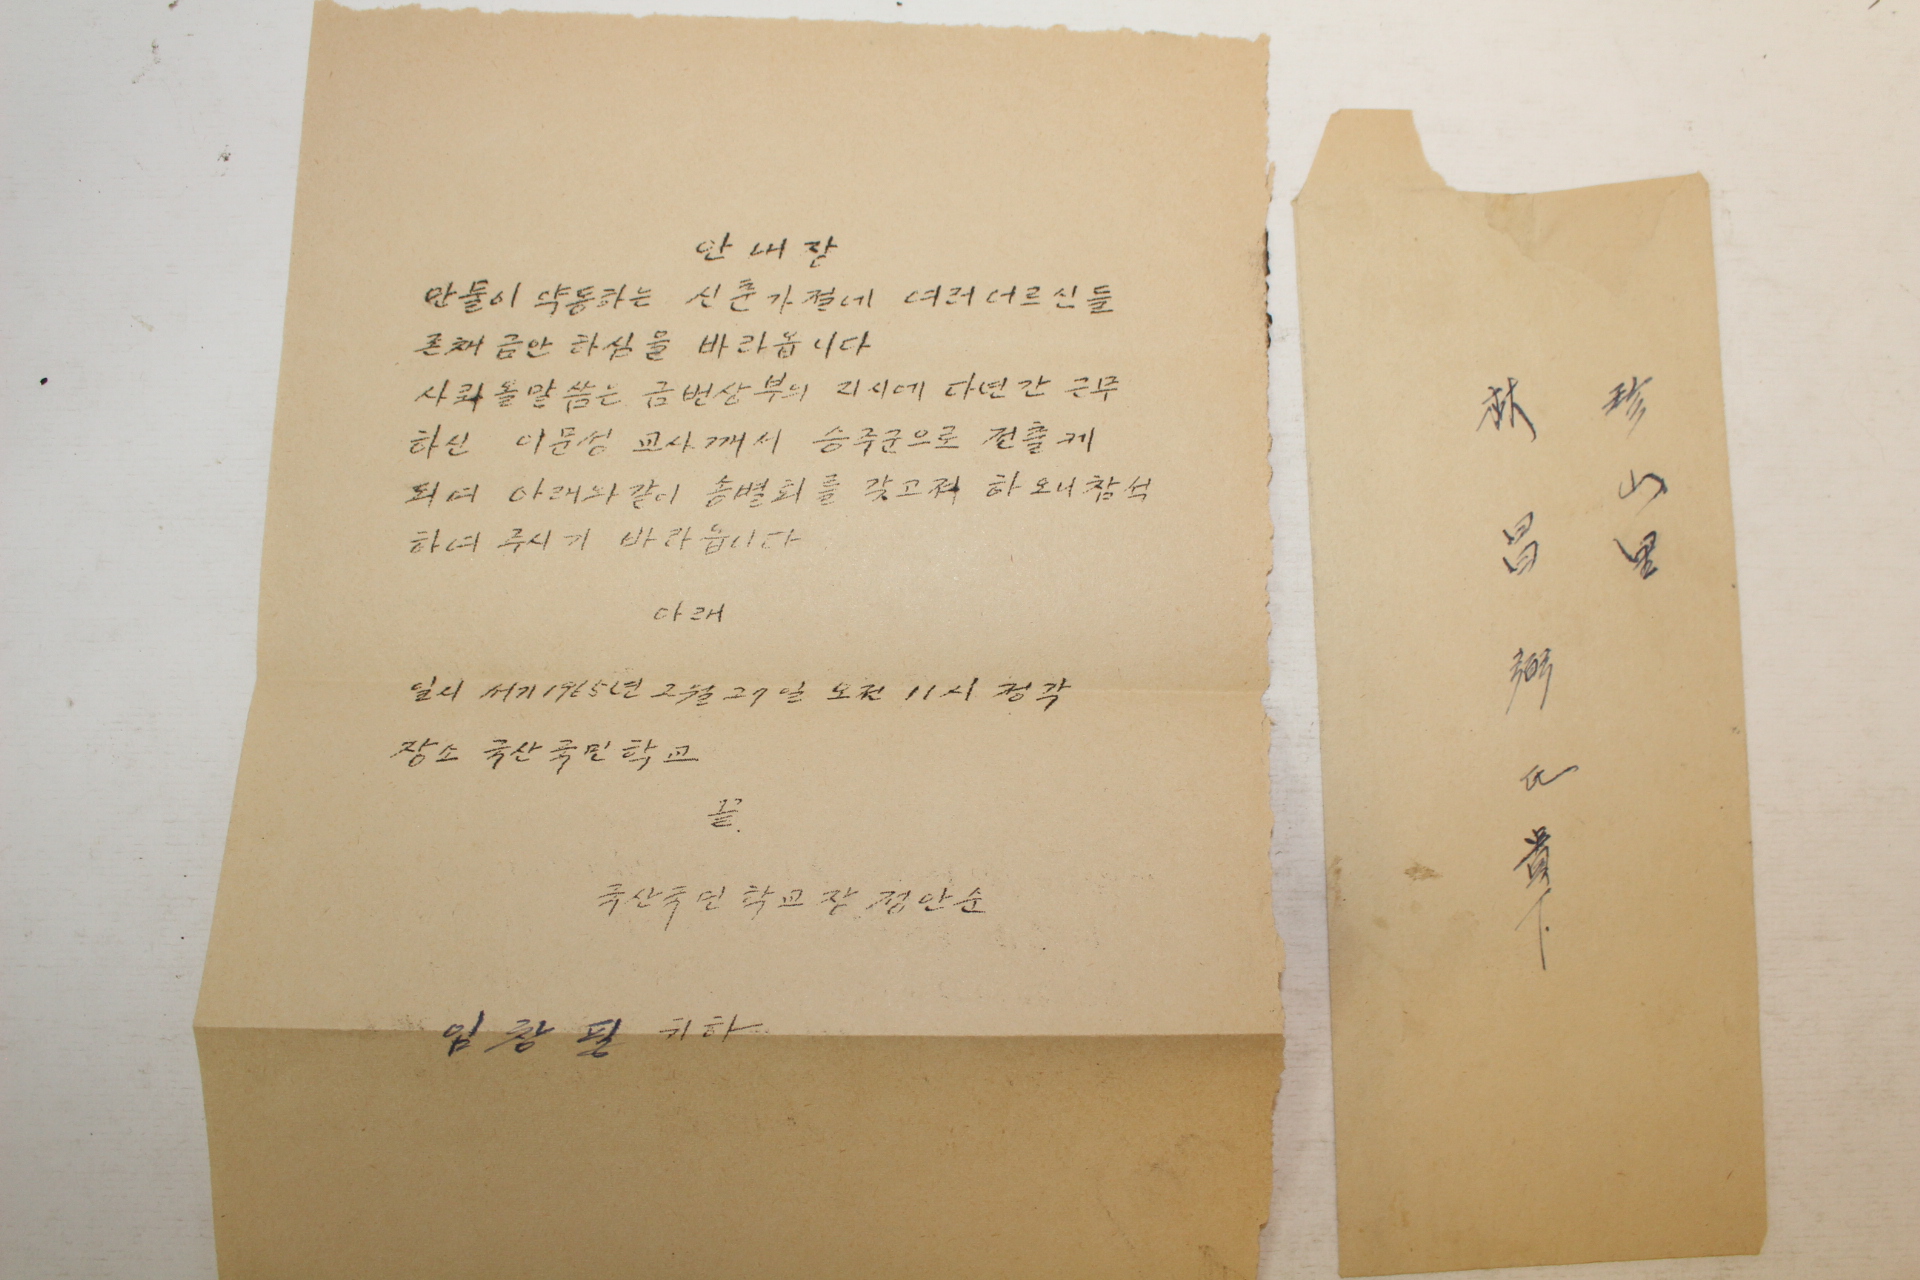 안내장
만물이 약동하는 신춘가절에 여러어르신들
존체 금안 하심을 바라옵니다
사뢰올말씀은 금번상부의 지시에 다년간 근무
하신 이문성 교사께서 승주군으로 전출케
되여 아래와같이 송별회를 갖고저 하오니 참석
하여 주시기 바라옵니다
아래
일시 서기1965년 2월 27일 오전 11시 정각
장소 국산국민학교
끝.
국산국민학교장 정안순
임창필 귀하
珍山里
林昌弼氏貴下